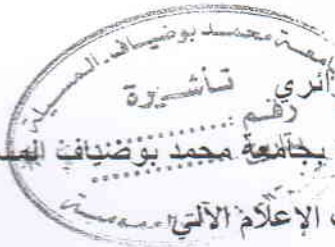 جامعة محمد بوضياف المسيلة
تأشيرة
رقم:
بجامعة محمد بوضياف
الإعلام الآلي